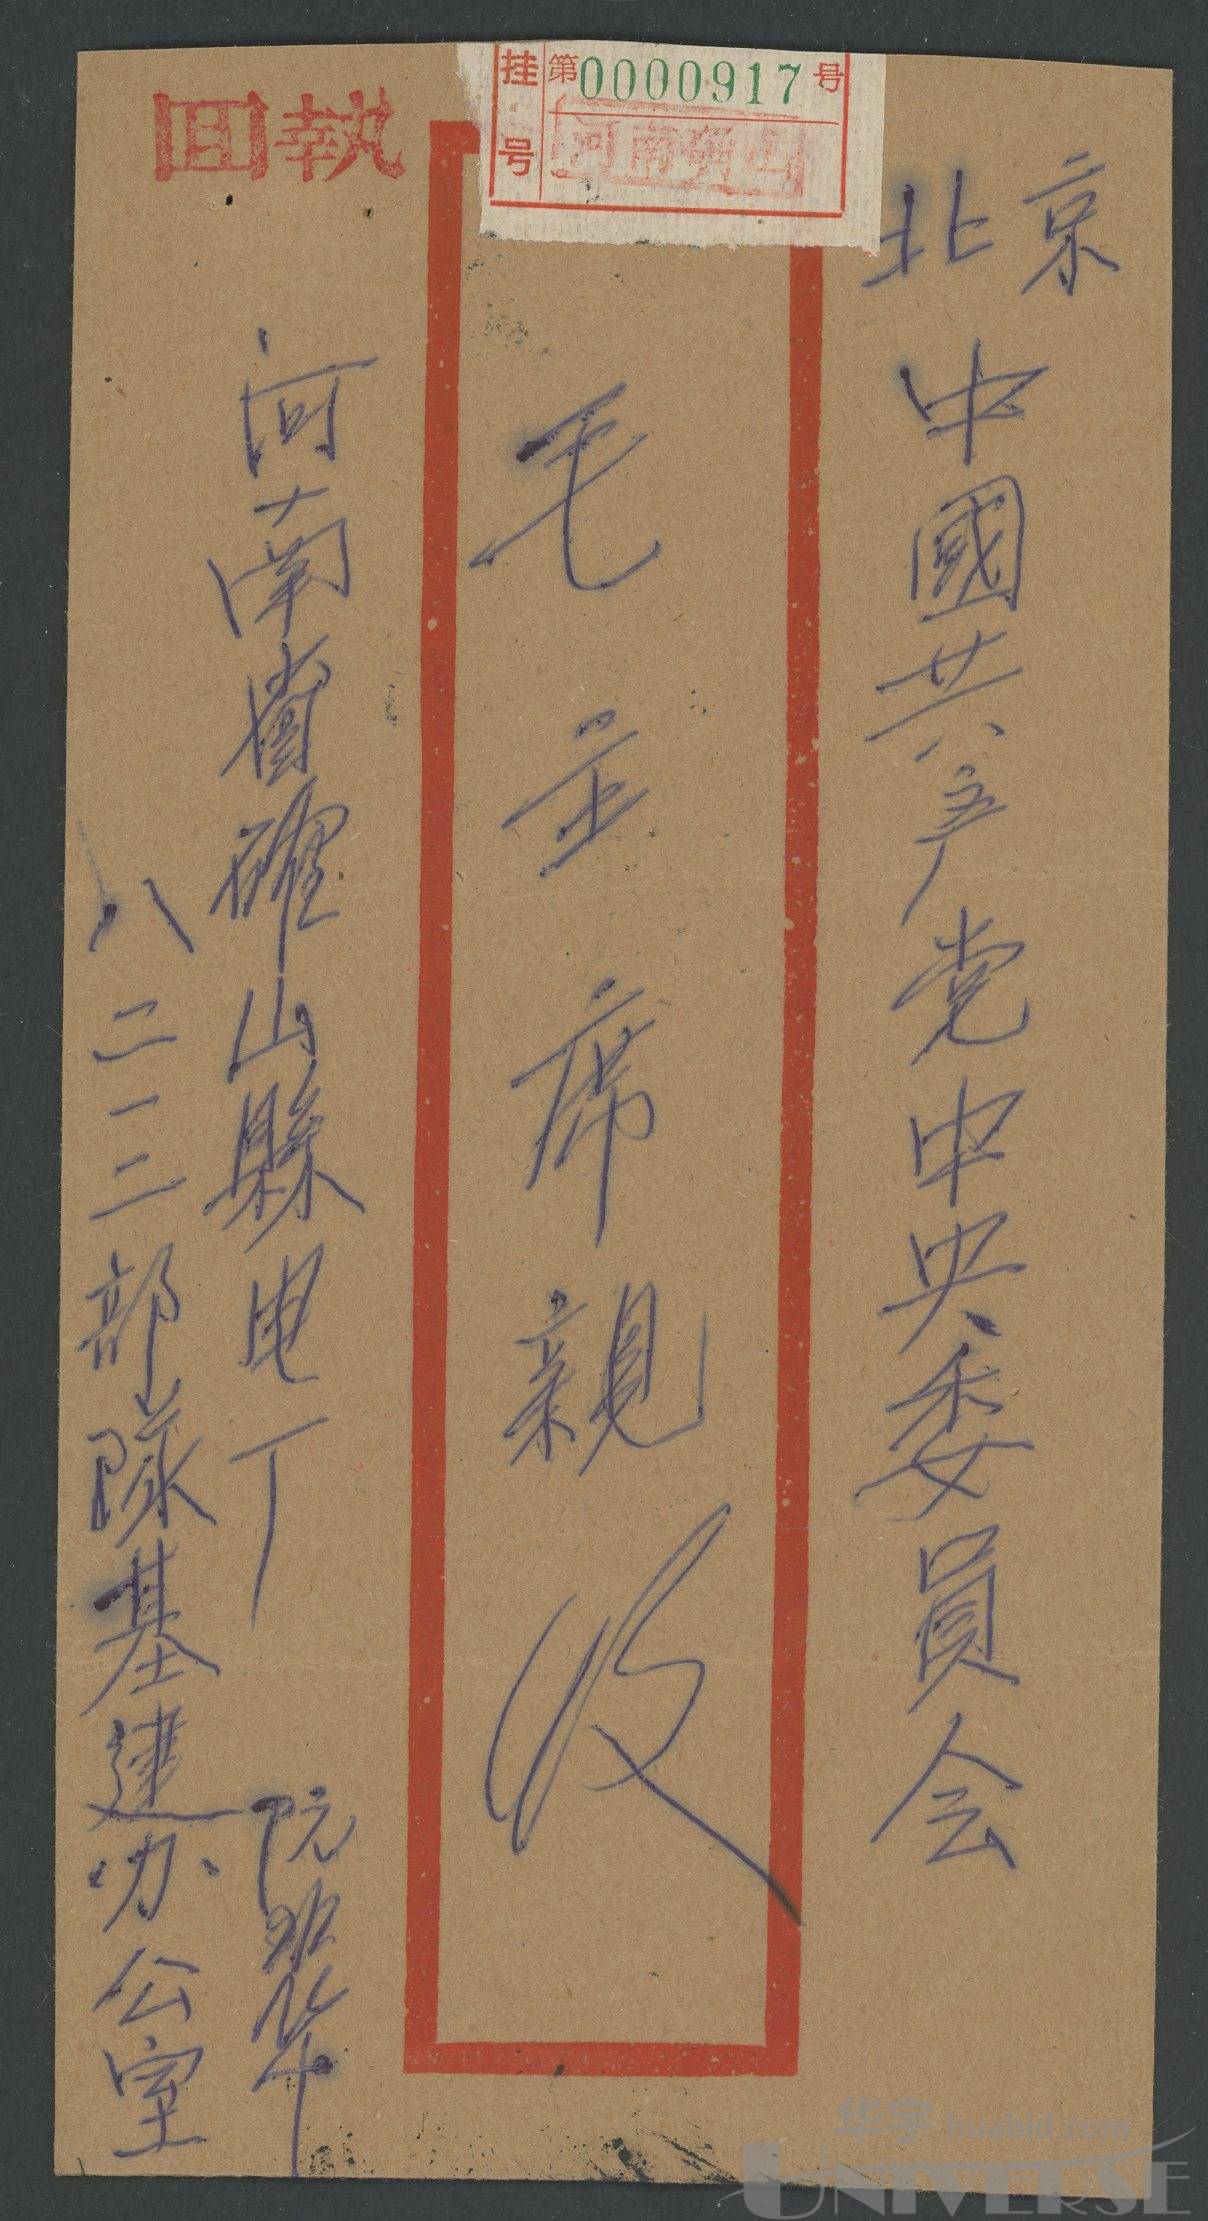 挂号
第0000917号
河南确山
回執
北京
中國共产党中央委員会
毛主席親收
河南省確山縣电厂
八二一二部隊基建办公室
华宇 huabid.com
UNIVERSE